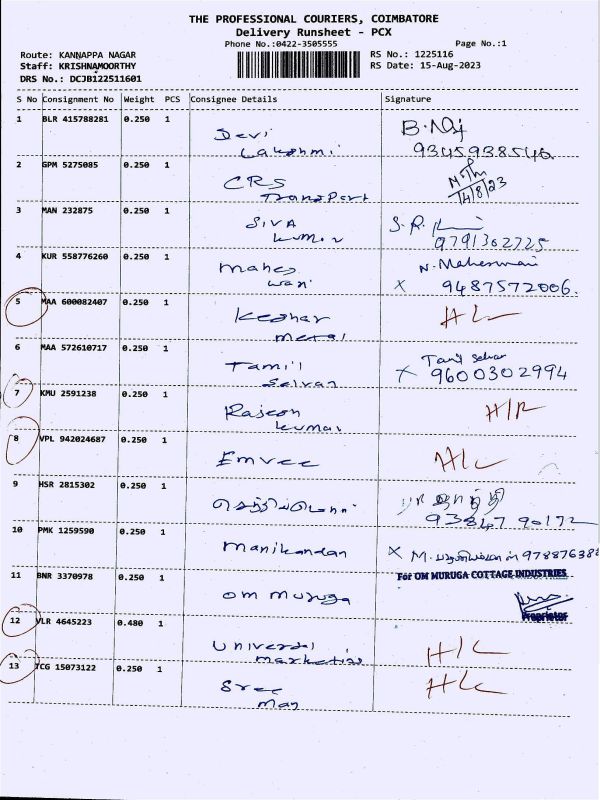 THE PROFESSIONAL COURIERS, COIMBATORE
Delivery Runsheet - PCX
Phone No.:0422-3505555 Page No.:1
Route: KANNAPPA NAGAR RS No.: 1225116
Staff: KRISHNAMOORTHY RS Date: 15-Aug-2023
DRS No.: DCJB122511601
S No Consignment No Weight PCS Consignee Details Signature
1 BLR 415788281 0.250 1
Devi B.
Lakshmi 9345938546
2 GPM 5275085 0.250 1
CRS
Transport 14/8/23
3 MAN 232875 0.250 1
Siva S.R.
kumar 9791302725
4 KUR 558776260 0.250 1
mahes N. Maheswari
wari X 9487572006.
5 MAA 600082407 0.250 1
Keshar H/L
metal
6 MAA 572610717 0.250 1
Tamil Tamil Selvan
Selvan X 9600302994
7 KMU 2591238 0.250 1
Rajeen H/R
kumar
8 VPL 942024687 0.250 1
Emvee H/L
9 HSR 2815302 0.250 1
93847 90172
10 PMK 1259590 0.250 1
Manikandan X M.
11 BNR 3370978 0.250 1
For OM MURUGA COTTAGE INDUSTRIES
om muruga
Proprietor
12 VLR 4645223 0.480 1
Universal H/L
marketing
13 TCG 15073122 0.250 1
Sree H/L
may